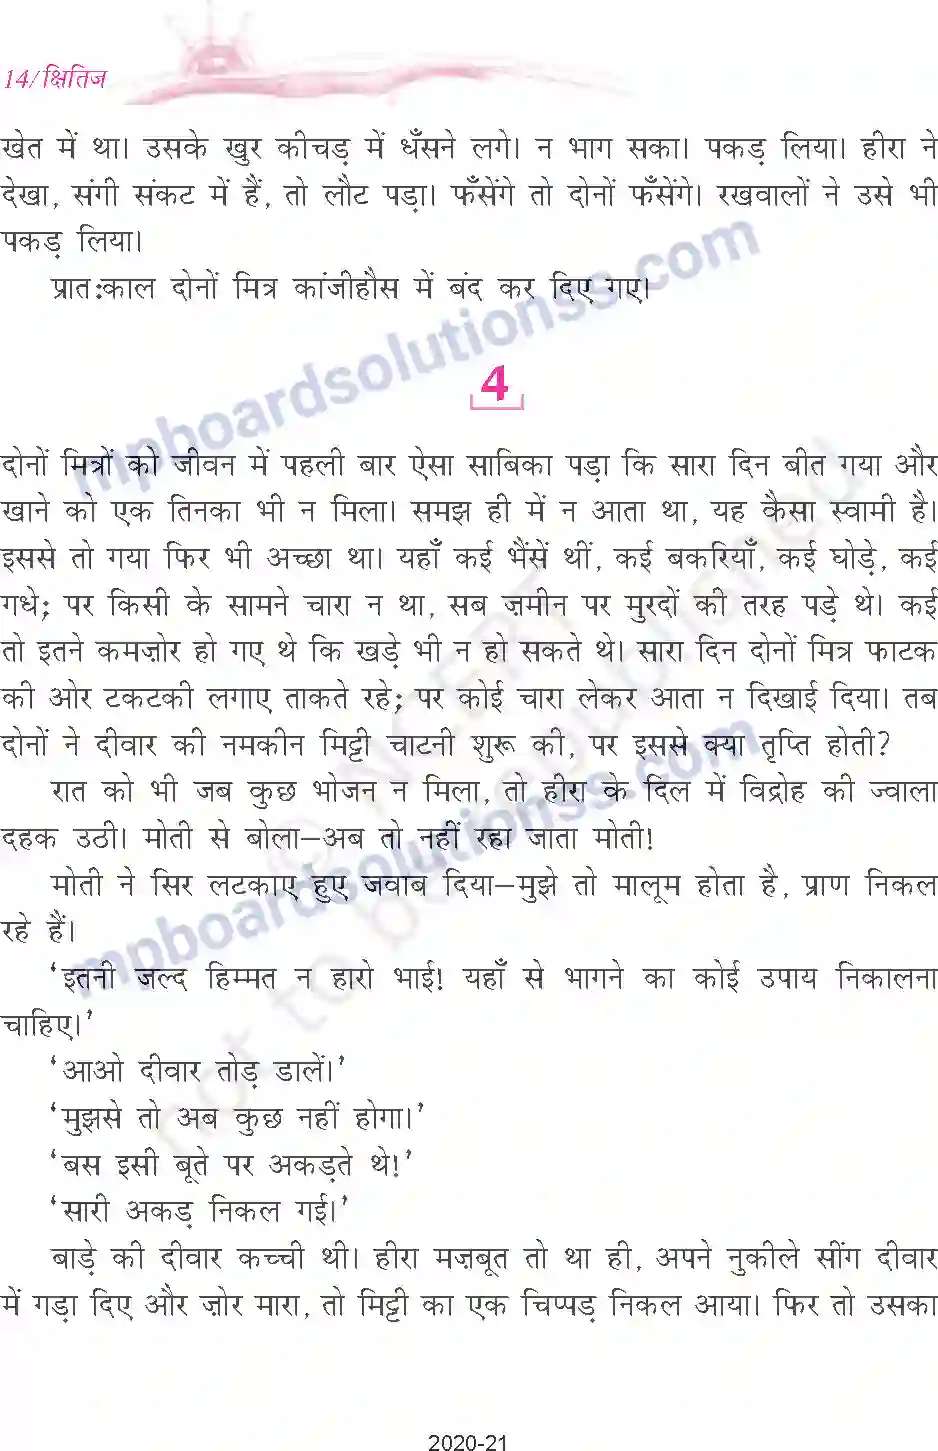 14/क्षितिज
खेत में था। उसके खुर कीचड़ में धँसने लगे। न भाग सका। पकड़ लिया। हीरा ने
देखा, संगी संकट में हैं, तो लौट पड़ा। फँसेंगे तो दोनों फँसेंगे। रखवालों ने उसे भी
पकड़ लिया।
प्रात:काल दोनों मित्र कांजीहौस में बंद कर दिए गए।
4
दोनों मित्रों को जीवन में पहली बार ऐसा साबिका पड़ा कि सारा दिन बीत गया और
खाने को एक तिनका भी न मिला। समझ ही में न आता था, यह कैसा स्वामी है।
इससे तो गया फिर भी अच्छा था। यहाँ कई भैंसें थीं, कई बकरियाँ, कई घोड़े, कई
गधे; पर किसी के सामने चारा न था, सब ज़मीन पर मुरदों की तरह पड़े थे। कई
तो इतने कमज़ोर हो गए थे कि खड़े भी न हो सकते थे। सारा दिन दोनों मित्र फाटक
की ओर टकटकी लगाए ताकते रहे; पर कोई चारा लेकर आता न दिखाई दिया। तब
दोनों ने दीवार की नमकीन मिट्टी चाटनी शुरू की, पर इससे क्या तृप्ति होती?
रात को भी जब कुछ भोजन न मिला, तो हीरा के दिल में विद्रोह की ज्वाला
दहक उठी। मोती से बोला–अब तो नहीं रहा जाता मोती!
मोती ने सिर लटकाए हुए जवाब दिया–मुझे तो मालूम होता है, प्राण निकल
रहे हैं।
‘इतनी जल्द हिम्मत न हारो भाई! यहाँ से भागने का कोई उपाय निकालना
चाहिए।’
‘आओ दीवार तोड़ डालें।’
‘मुझसे तो अब कुछ नहीं होगा।’
‘बस इसी बूते पर अकड़ते थे!’
‘सारी अकड़ निकल गई।’
बाड़े की दीवार कच्ची थी। हीरा मज़बूत तो था ही, अपने नुकीले सींग दीवार
में गड़ा दिए और ज़ोर मारा, तो मिट्टी का एक चिप्पड़ निकल आया। फिर तो उसका
2020-21
mpboardsolutionss.com
mpboardsolutionss.com
© NCERT
not to be republished